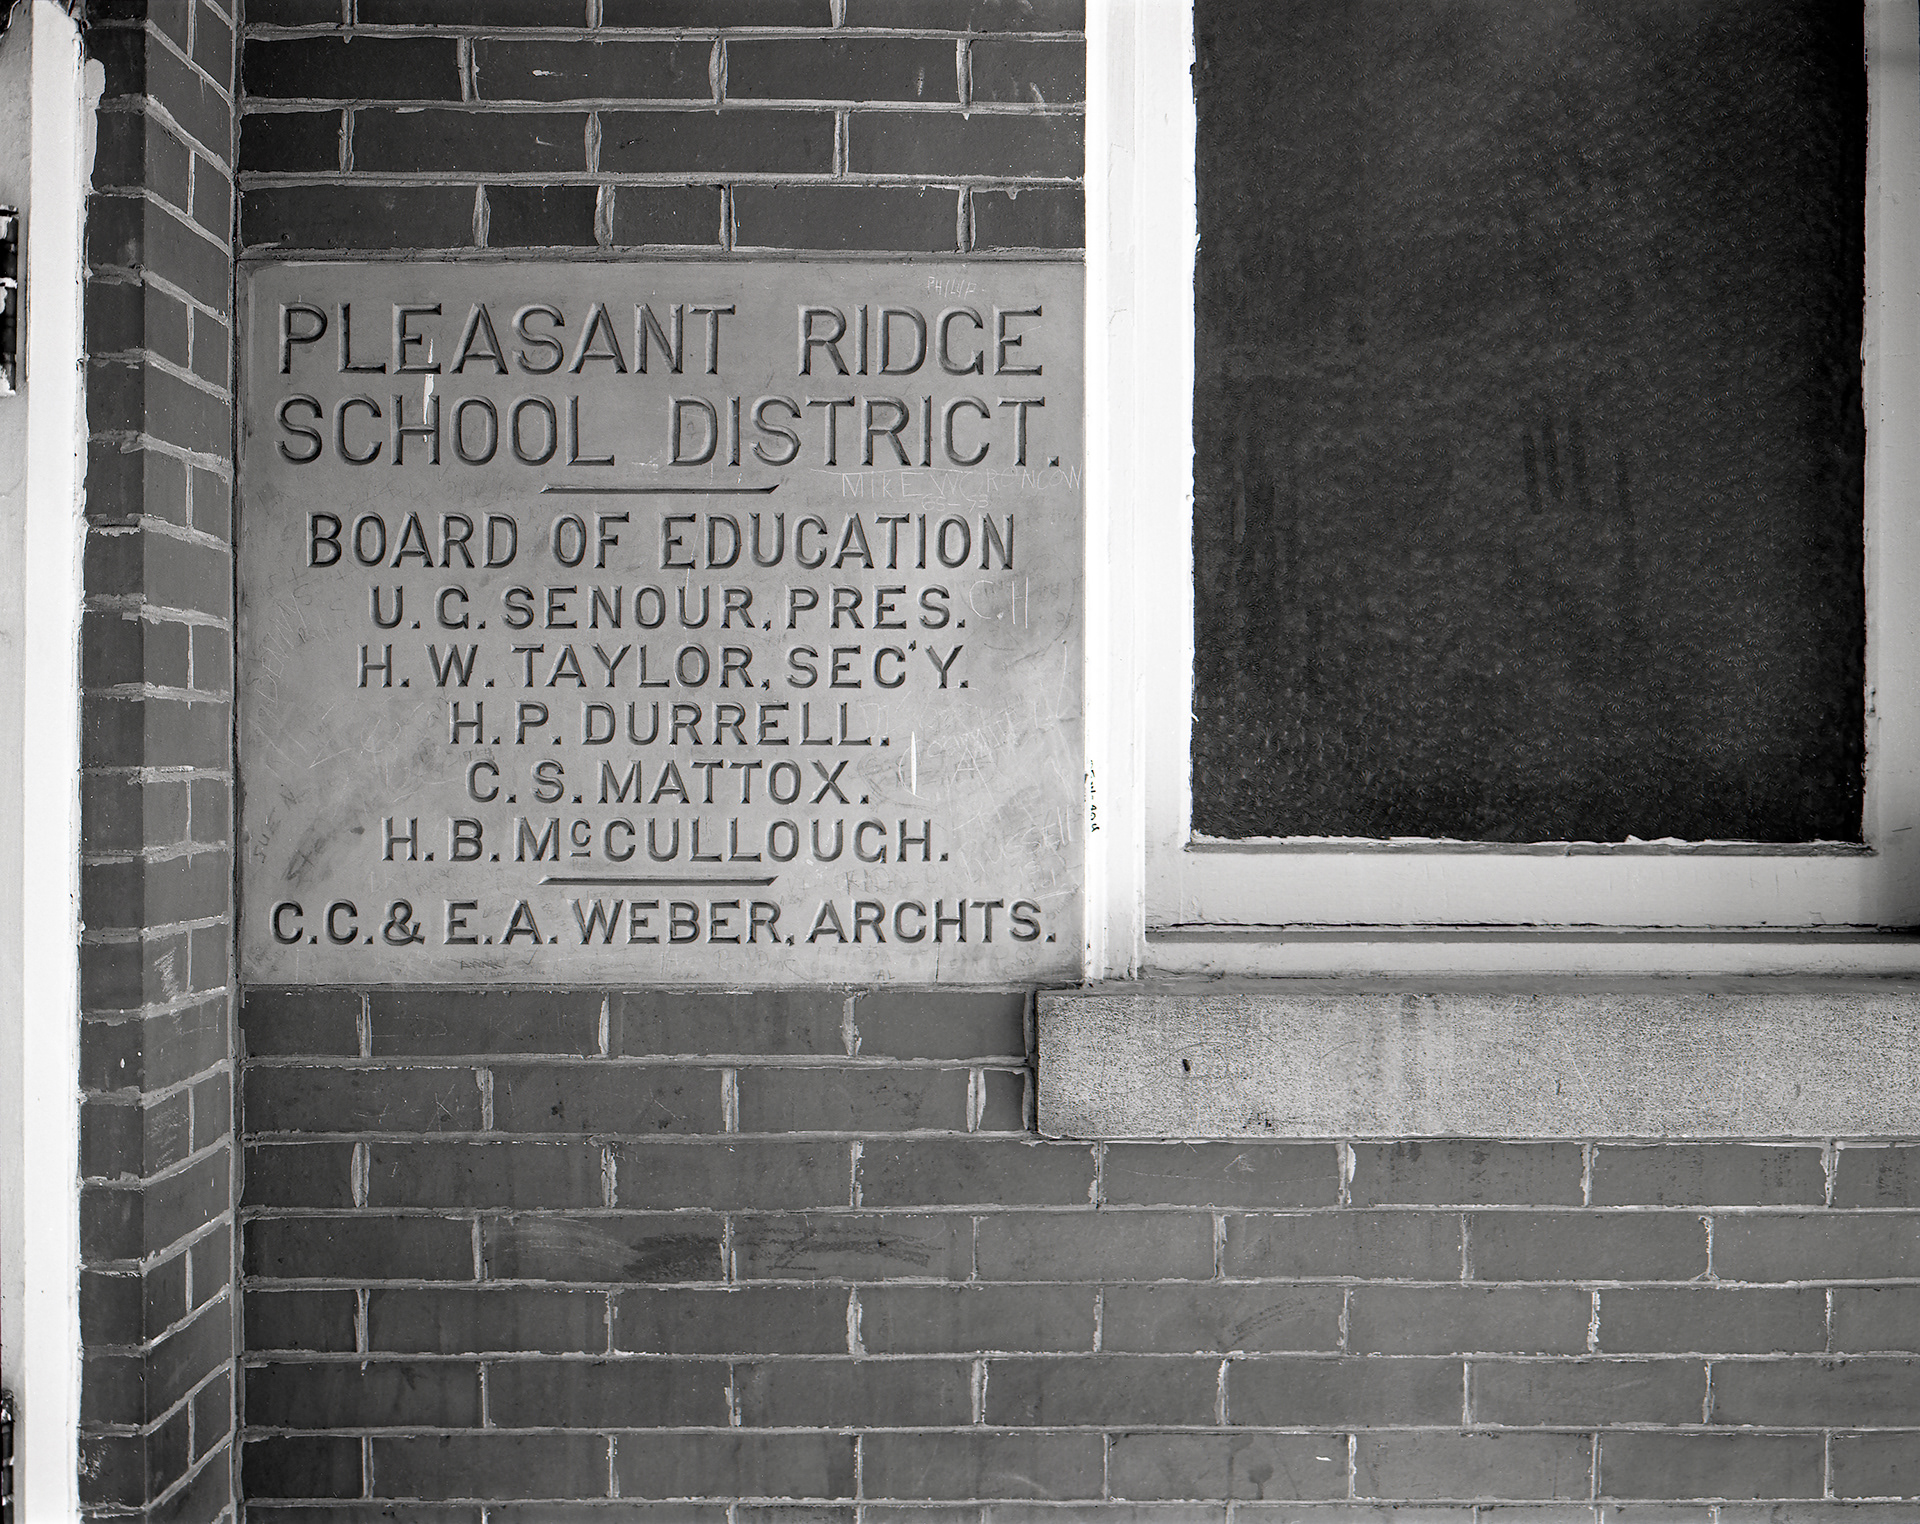 PHILIP
PLEASANT RIDGE
SCHOOL DISTRICT.
MIKE
BOARD OF EDUCATION
U. G. SENOUR, PRES.
C. H
H. W. TAYLOR, SEC'Y.
H. P. DURRELL.
C. S. MATTOX.
H. B. McCULLOUGH.
C. C. & E. A. WEBER, ARCHTS.